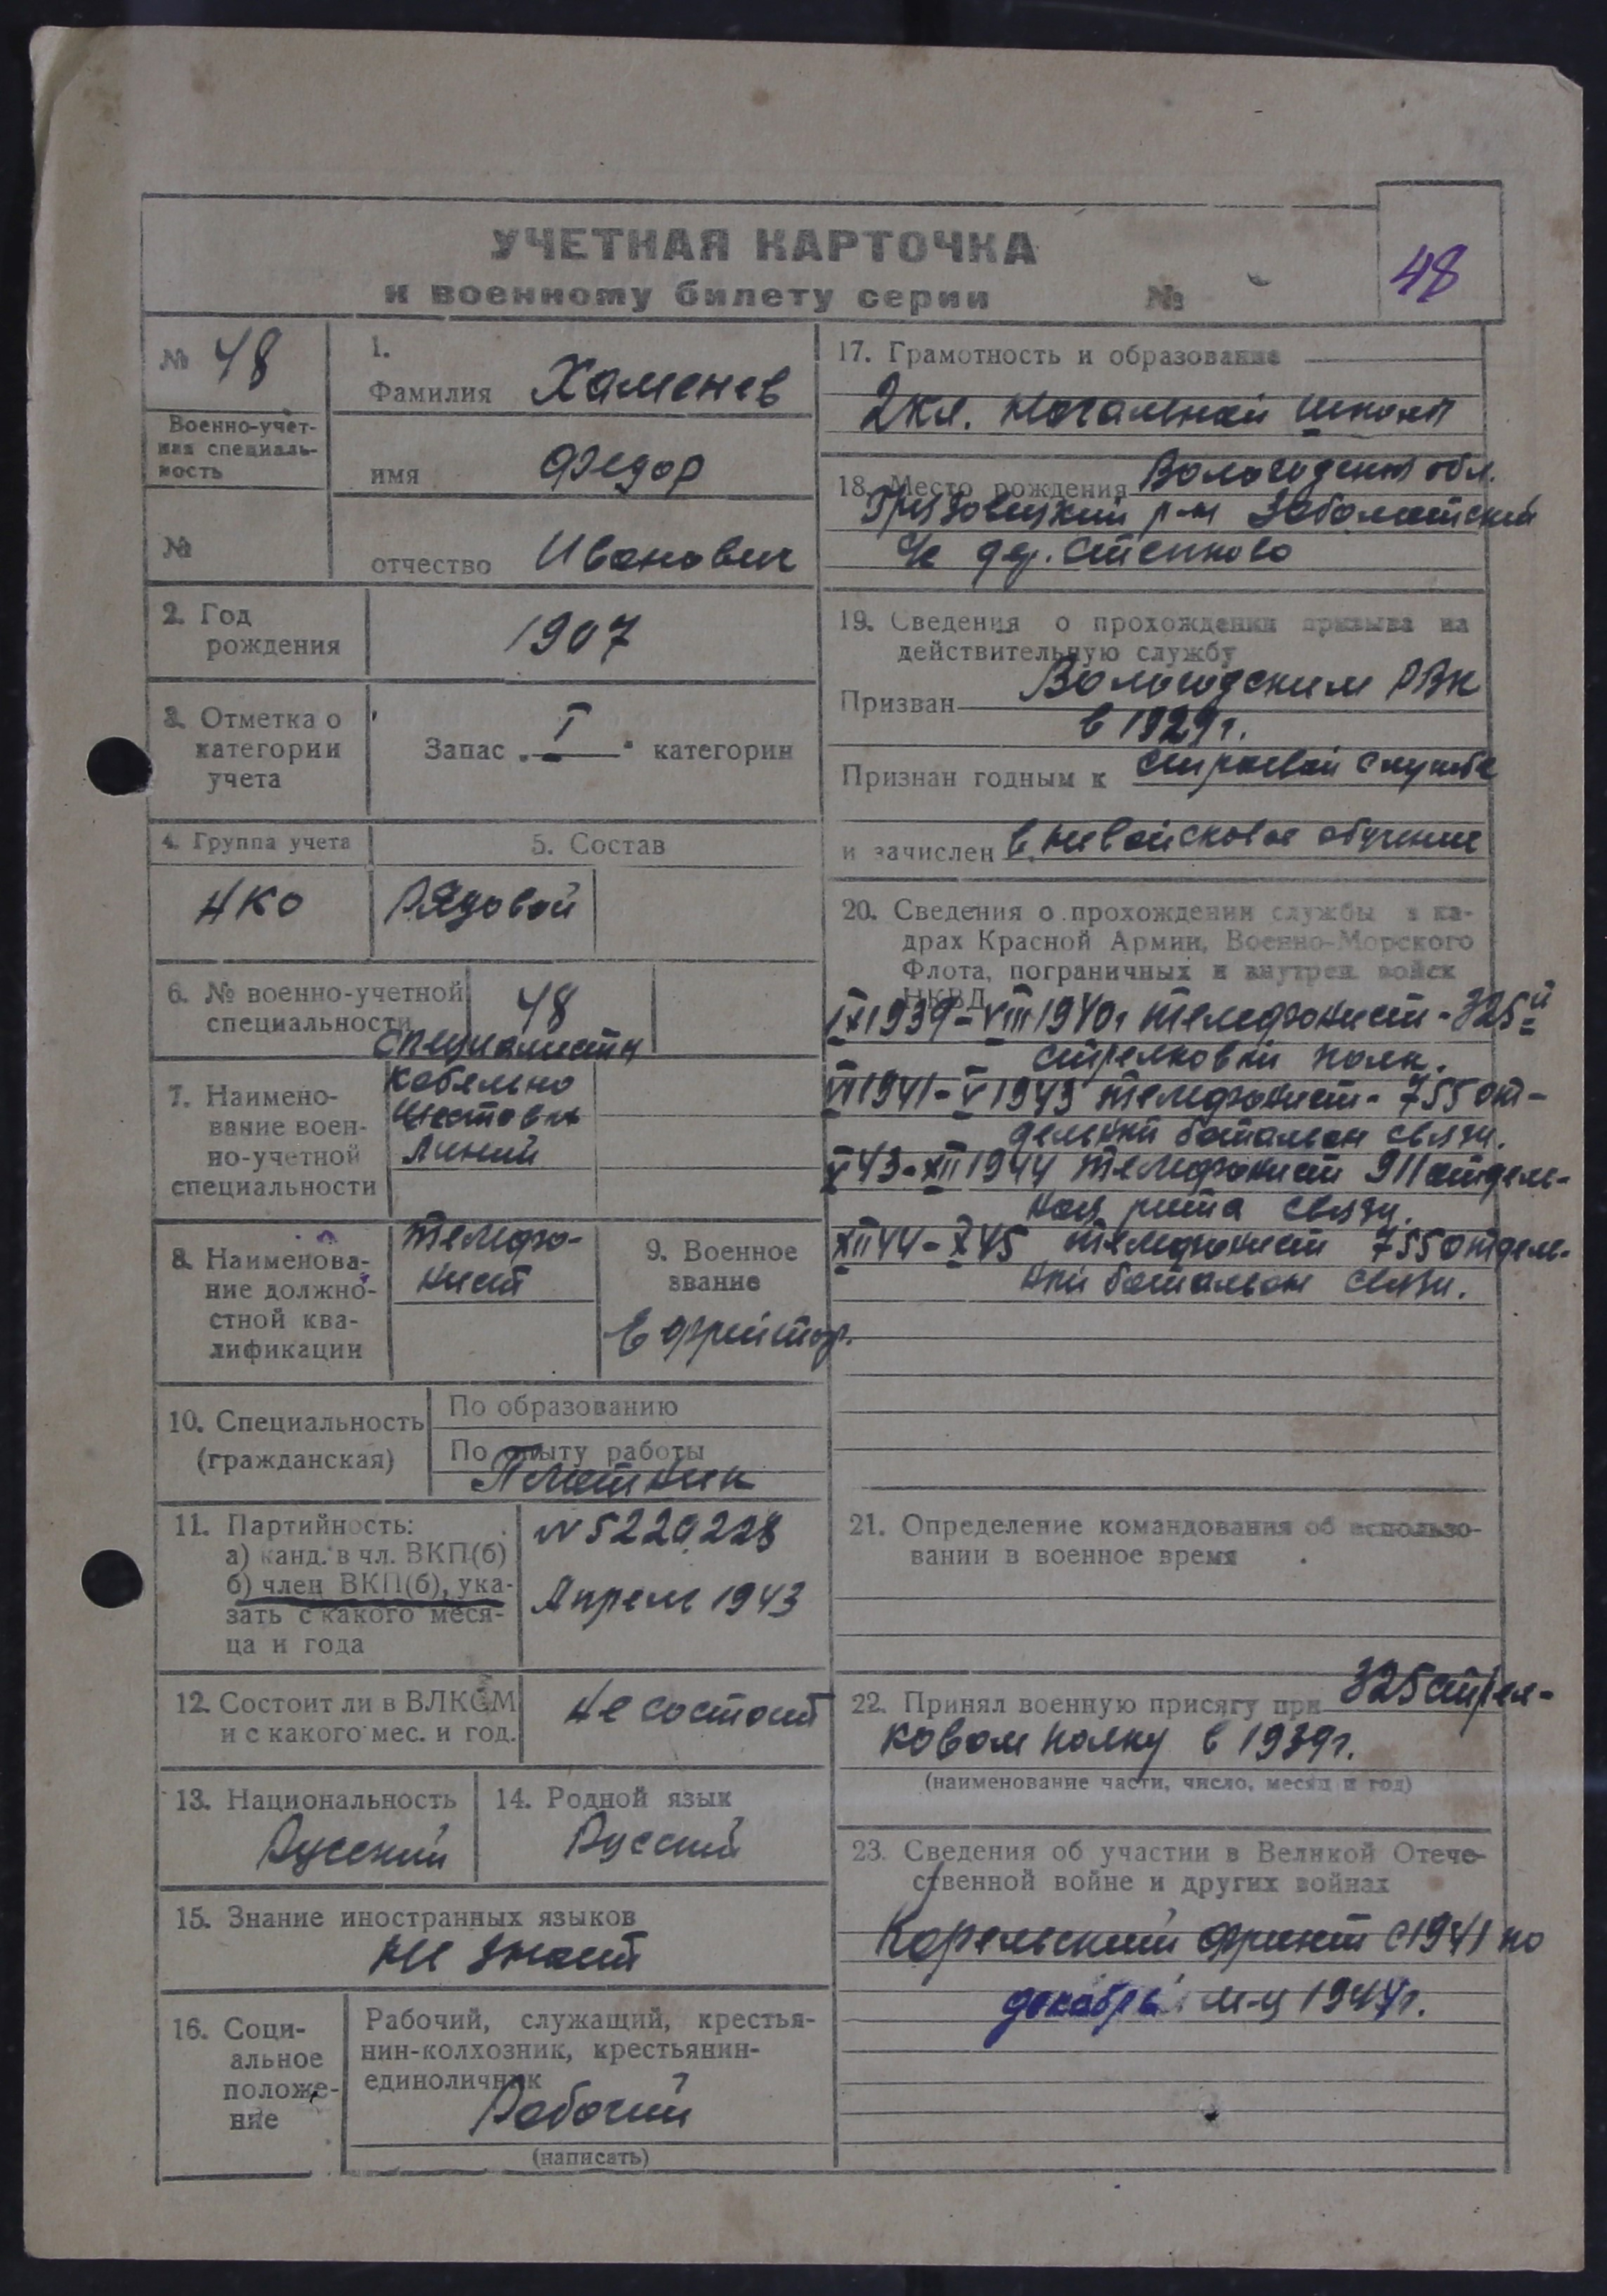 УЧЕТНАЯ КАРТОЧКА
к военному билету серии №
48
№ 48
Военно-учет-
ная специаль-
ность
№
1.
Фамилия Хаменев
имя Федор
отчество Иванович
2. Год
рождения
1907
3. Отметка о
категории
учета
Запас „I“ категории
4. Группа учета
НКО
5. Состав
Рядовой
6. № военно-учетной
специальности
48
7. Наимено-
вание воен-
но-учетной
специальности
Специалисты
кабельно
шестовых
линий
8. Наименова-
ние должно-
стной ква-
лификации
Телефо-
нист
9. Военное
звание
Ефрейтор.
10. Специальность
(гражданская)
По образованию
По опыту работы
Плотник
11. Партийность:
а) канд. в чл. ВКП(б)
б) член ВКП(б), ука-
зать с какого меся-
ца и года
N 5220228
Апрель 1943
12. Состоит ли в ВЛКСМ
и с какого мес. и год.
Не состоит
13. Национальность
Русский
14. Родной язык
Русский
15. Знание иностранных языков
не знает
16. Соци-
альное
положе-
ние
Рабочий, служащий, крестья-
нин-колхозник, крестьянин-
единоличник
Рабочий
(написать)
17. Грамотность и образование
2 кл. начальной школы
18. Место рождения Вологодской обл.
Грязовецкий р-н Заболотский
с/с дер. Степково
19. Сведения о прохождении призыва на
действительную службу
Призван Вологодским РВК
в 1929 г.
Признан годным к строевой службе
и зачислен в невойсковое обучение
20. Сведения о прохождении службы в ка-
драх Красной Армии, Военно-Морского
Флота, пограничных и внутрен. войск
НКВД
IX 1939 - VIII 1940 г телефонист - 325й
стрелковый полк.
VI 1941 - V 1943 телефонист - 755 от-
дельный батальон связи.
V 43 - XII 1944 телефонист 911 отдель-
ная рота связи.
XII 44 - X 45 телефонист 755 отдель-
ный батальон связи.
21. Определение командования об использо-
вании в военное время
22. Принял военную присягу при 325 стрел-
ковом полку в 1939 г.
(наименование части, число, месяц и год)
23. Сведения об участии в Великой Отече-
ственной войне и других войнах
Карельский фронт с 1941 по
декабрь м-ц 1944 г.